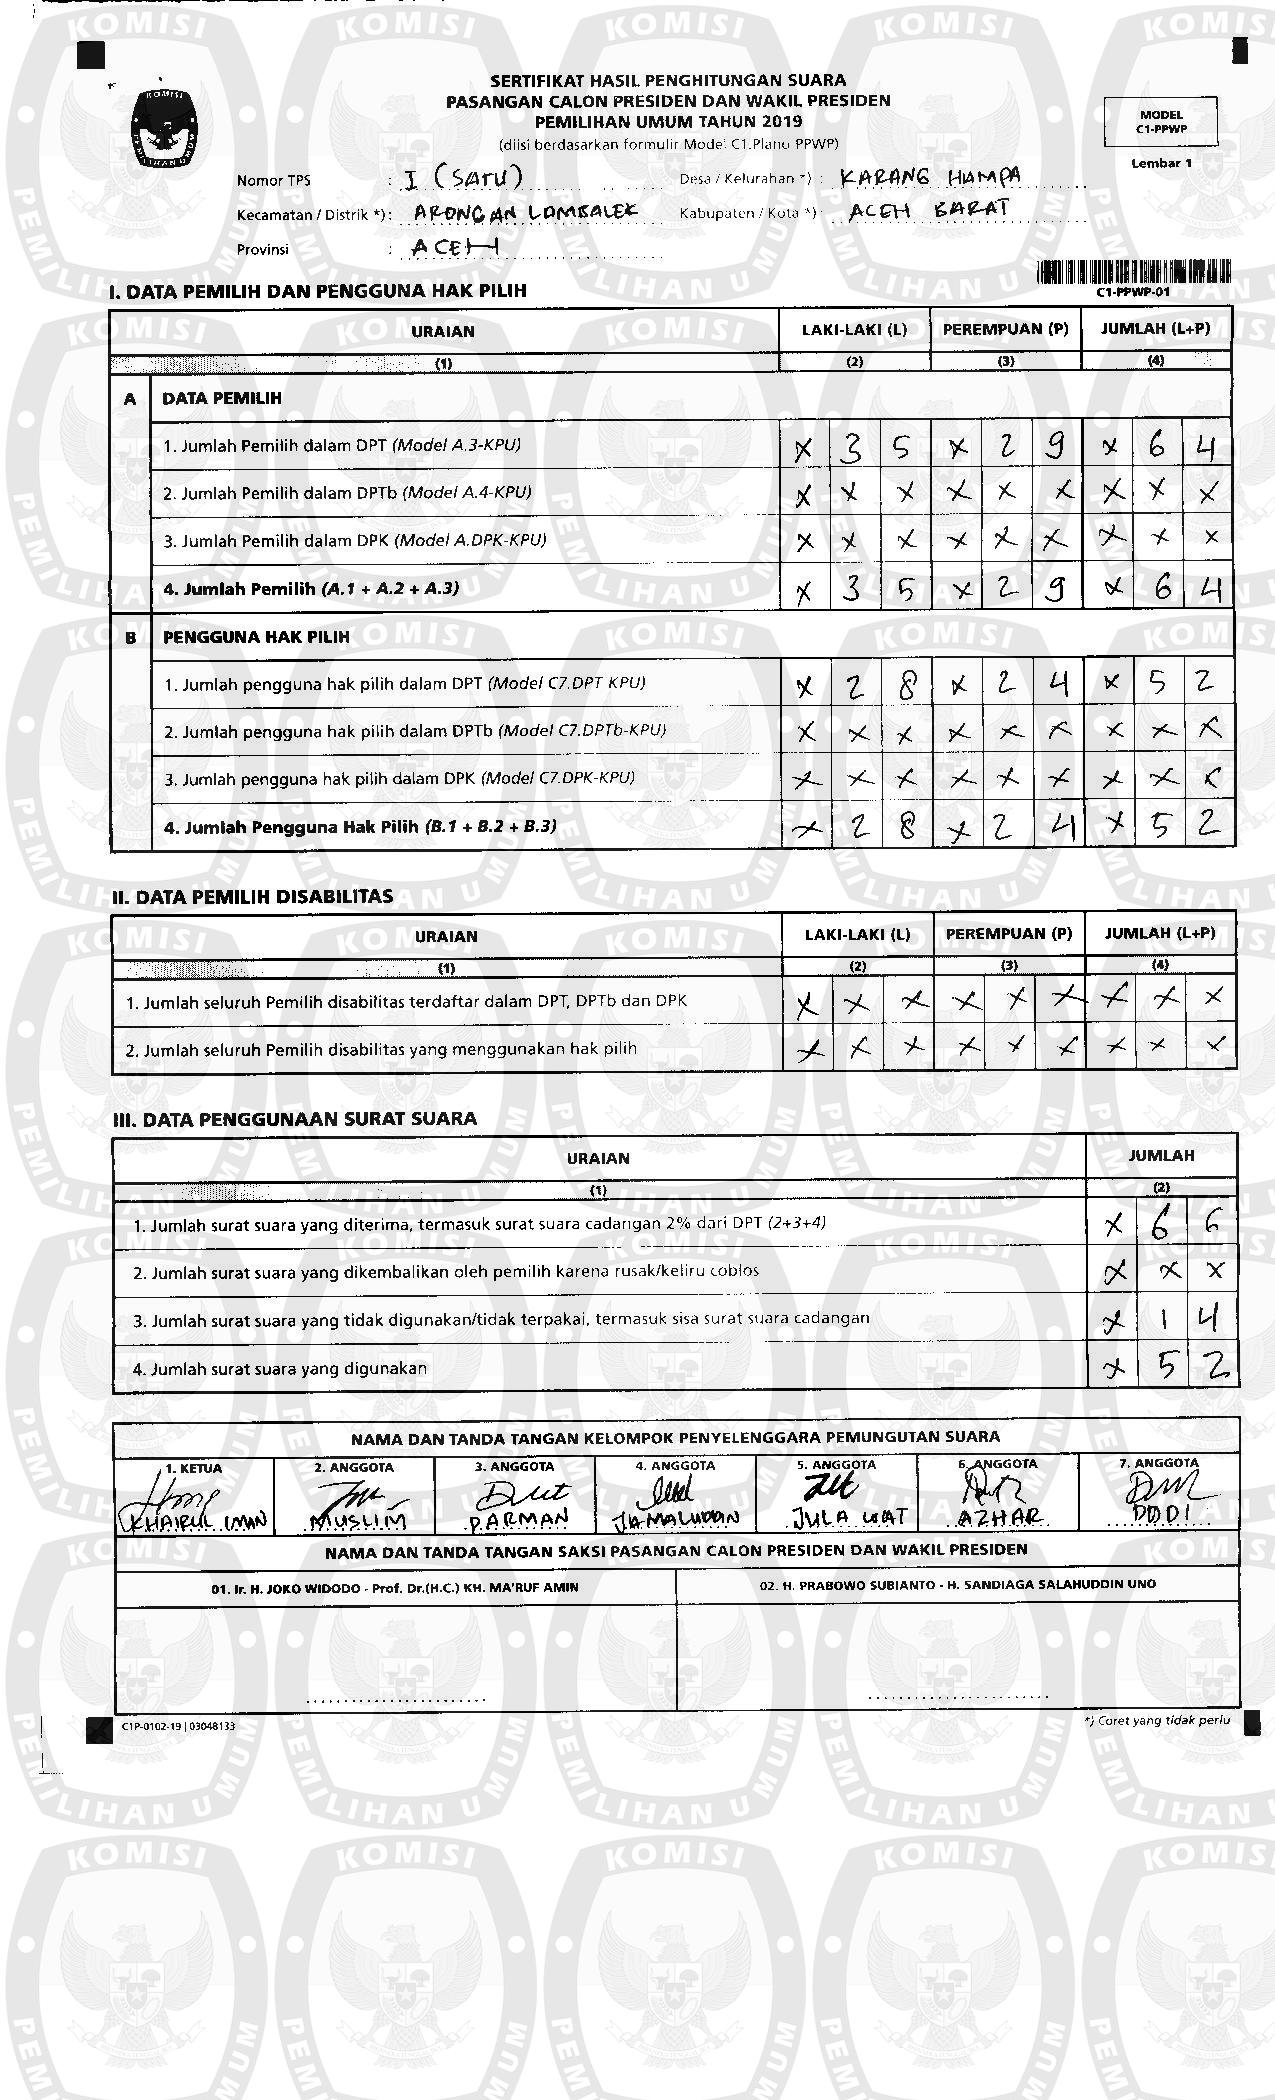 SERTIFIKAT HASIL PENGHITUNGAN SUARA
PASANGAN CALON PRESIDEN DAN WAKIL PRESIDEN
PEMILIHAN UMUM TAHUN 2019
(diisi berdasarkan formulir Model C1.Plano PPWP)
MODEL
C1-PPWP
Lembar 1
Nomor TPS : I (SATU) Desa / Kelurahan *) : KARANG HAMPA
Kecamatan / Distrik *) : ARONGAN LAMBALEK Kabupaten / Kota *) : ACEH BARAT
Provinsi : ACEH
C1-PPWP-01
I. DATA PEMILIH DAN PENGGUNA HAK PILIH
URAIAN LAKI-LAKI (L) PEREMPUAN (P) JUMLAH (L+P)
(1) (2) (3) (4)
A DATA PEMILIH
1. Jumlah Pemilih dalam DPT (Model A.3-KPU) X 3 5 X 2 9 X 6 4
2. Jumlah Pemilih dalam DPTb (Model A.4-KPU) X X X X X X X X X
3. Jumlah Pemilih dalam DPK (Model A.DPK-KPU) X X X X X X X X X
4. Jumlah Pemilih (A.1 + A.2 + A.3) X 3 5 X 2 9 X 6 4
B PENGGUNA HAK PILIH
1. Jumlah pengguna hak pilih dalam DPT (Model C7.DPT KPU) X 2 8 X 2 4 X 5 2
2. Jumlah pengguna hak pilih dalam DPTb (Model C7.DPTb-KPU) X X X X X X X X X
3. Jumlah pengguna hak pilih dalam DPK (Model C7.DPK-KPU) X X X X X X X X X
4. Jumlah Pengguna Hak Pilih (B.1 + B.2 + B.3) X 2 8 X 2 4 X 5 2
II. DATA PEMILIH DISABILITAS
URAIAN LAKI-LAKI (L) PEREMPUAN (P) JUMLAH (L+P)
(1) (2) (3) (4)
1. Jumlah seluruh Pemilih disabilitas terdaftar dalam DPT, DPTb dan DPK X X X X X X X X X
2. Jumlah seluruh Pemilih disabilitas yang menggunakan hak pilih X X X X X X X X X
III. DATA PENGGUNAAN SURAT SUARA
URAIAN JUMLAH
(1) (2)
1. Jumlah surat suara yang diterima, termasuk surat suara cadangan 2% dari DPT (2+3+4) X 6 6
2. Jumlah surat suara yang dikembalikan oleh pemilih karena rusak/keliru coblos X X X
3. Jumlah surat suara yang tidak digunakan/tidak terpakai, termasuk sisa surat suara cadangan X 1 4
4. Jumlah surat suara yang digunakan X 5 2
NAMA DAN TANDA TANGAN KELOMPOK PENYELENGGARA PEMUNGUTAN SUARA
1. KETUA 2. ANGGOTA 3. ANGGOTA 4. ANGGOTA 5. ANGGOTA 6. ANGGOTA 7. ANGGOTA
KHAIRUL IMAN MUSLIM DARMAN JAMALUDDIN JULA WAT AZHAR DODI
NAMA DAN TANDA TANGAN SAKSI PASANGAN CALON PRESIDEN DAN WAKIL PRESIDEN
01. Ir. H. JOKO WIDODO - Prof. Dr.(H.C.) KH. MA'RUF AMIN 02. H. PRABOWO SUBIANTO - H. SANDIAGA SALAHUDDIN UNO
C1P-0102-19 | 03048133 *) Coret yang tidak perlu